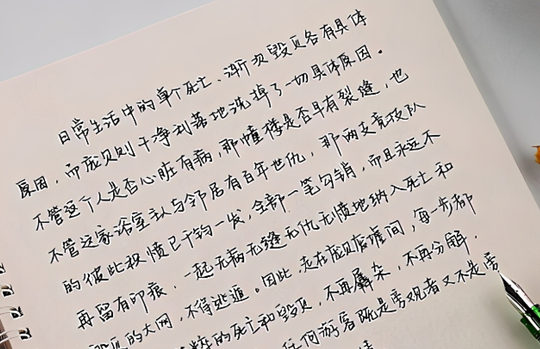 日常生活中的单个死亡、渐次毁灭各有具体
原因，而庞贝则干净利落地洗掉了一切具体原因。
不管这个人是否心脏有病，那幢楼是否早有裂缝，也
不管这家浴室主人与邻居有百年世仇，那两支竞技队
的彼此积愤已千钧一发，全部一笔勾销，而且永远不
再留有印痕，一起无病无缝无仇无愤地纳入死亡和
毁灭的大网，不得逃遁。因此，走在庞贝废墟间，每一步都
的死亡和毁灭，不再羼杂，不再分解，
任何游客既是旁观者又不是旁